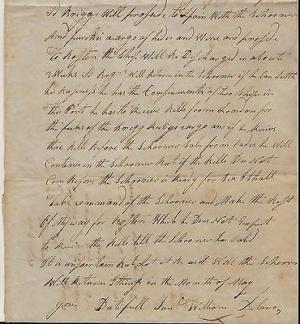 To Briggs Will proceed to Spain With the Schooner
And take in a cargo of hides and Wine and proceed
To Boston the Ship Will be Discharged in about
3 Weeks Will Return in the Schooner if he Can Settle
his Business he has the Compliments of two Ships in
this Port he has to Receive Bills from London for
the of the Brigs cargo and if he Receives
those Bills Before the Schooner Sails from he Will
Continue in the Schooner But if the Bills Do Not
Come Before the Schooner is Ready for Sea I Shall
Take command of the Schooner and Make the Best
Of My way for Boston Which he Does Not Expect
to Receive the Bills till the Schooner has Sailed
It is uncertain But Let it Be as it Will the Schooner
Will Return I think in the Month of May
your Dutifull Son William